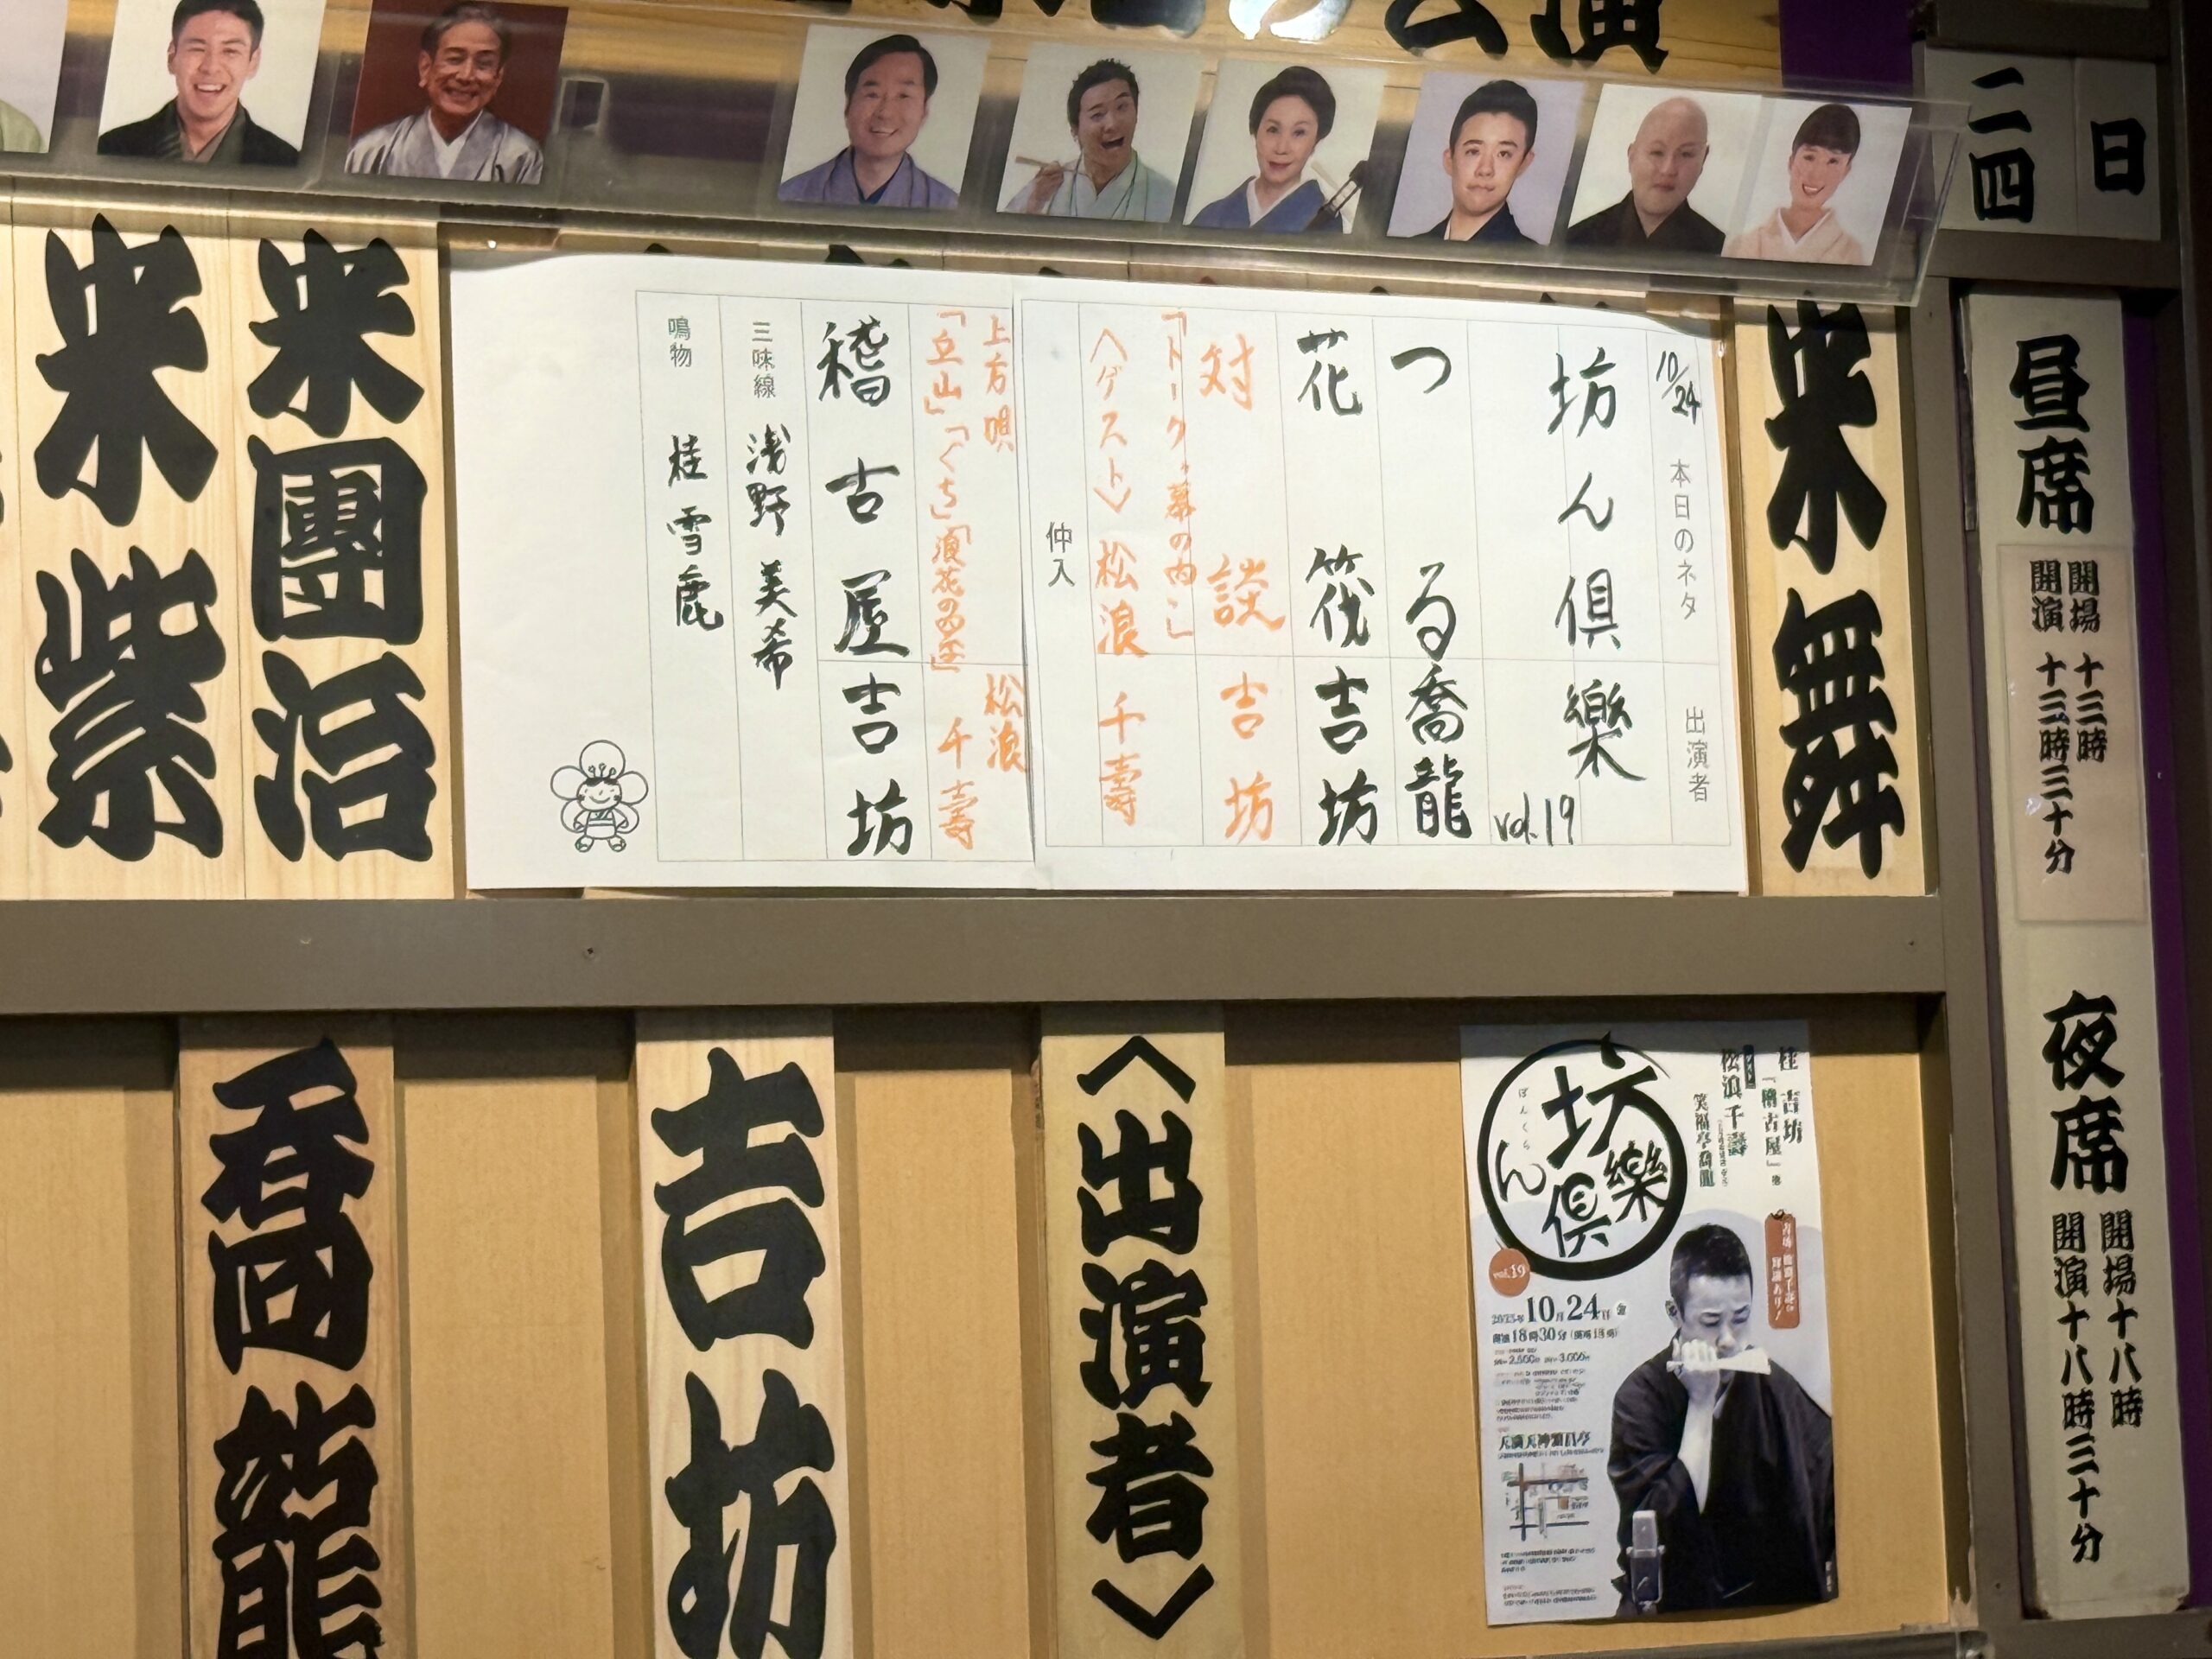 公演
二四
日
昼席
開場 十三時
開演 十三時三十分
夜席
開場十八時
開演十八時三十分
米舞
10/24 本日のネタ 出演者
坊ん倶樂
vol.19
つる 喬龍
花筏 吉坊
対談 吉坊
「トーク・幕の内」
〈ゲスト〉松浪千壽
仲入
上方唄 松浪
「立山」「ぐち」「浪花の四季」 千壽
稽古屋 吉坊
三味線 浅野美希
鳴物 桂雪鹿
米團治
米紫
桂吉坊
『稽古屋』
松浪千壽
笑福亭喬龍
坊ん倶樂
ぼんくら
vol.19
2025年10月24日 金
開演18時30分(開場18時)
2,500円 3,000円
天満天神繁昌亭
〈出演者〉
吉坊
喬龍